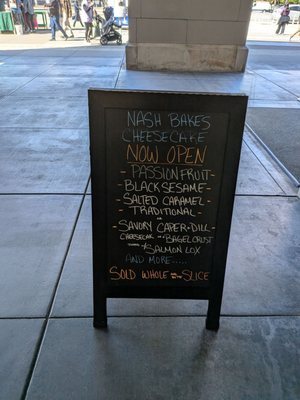 NASH BAKES
CHEESECAKE
NOW OPEN
- PASSIONFRUIT -
- BLACK SESAME -
- SALTED CARAMEL -
- TRADITIONAL -
OR
SAVORY CAPER + DILL
CHEESECAKE BAGEL CRUST
+ SALMON LOX
AND MORE.....
SOLD WHOLE SLICE